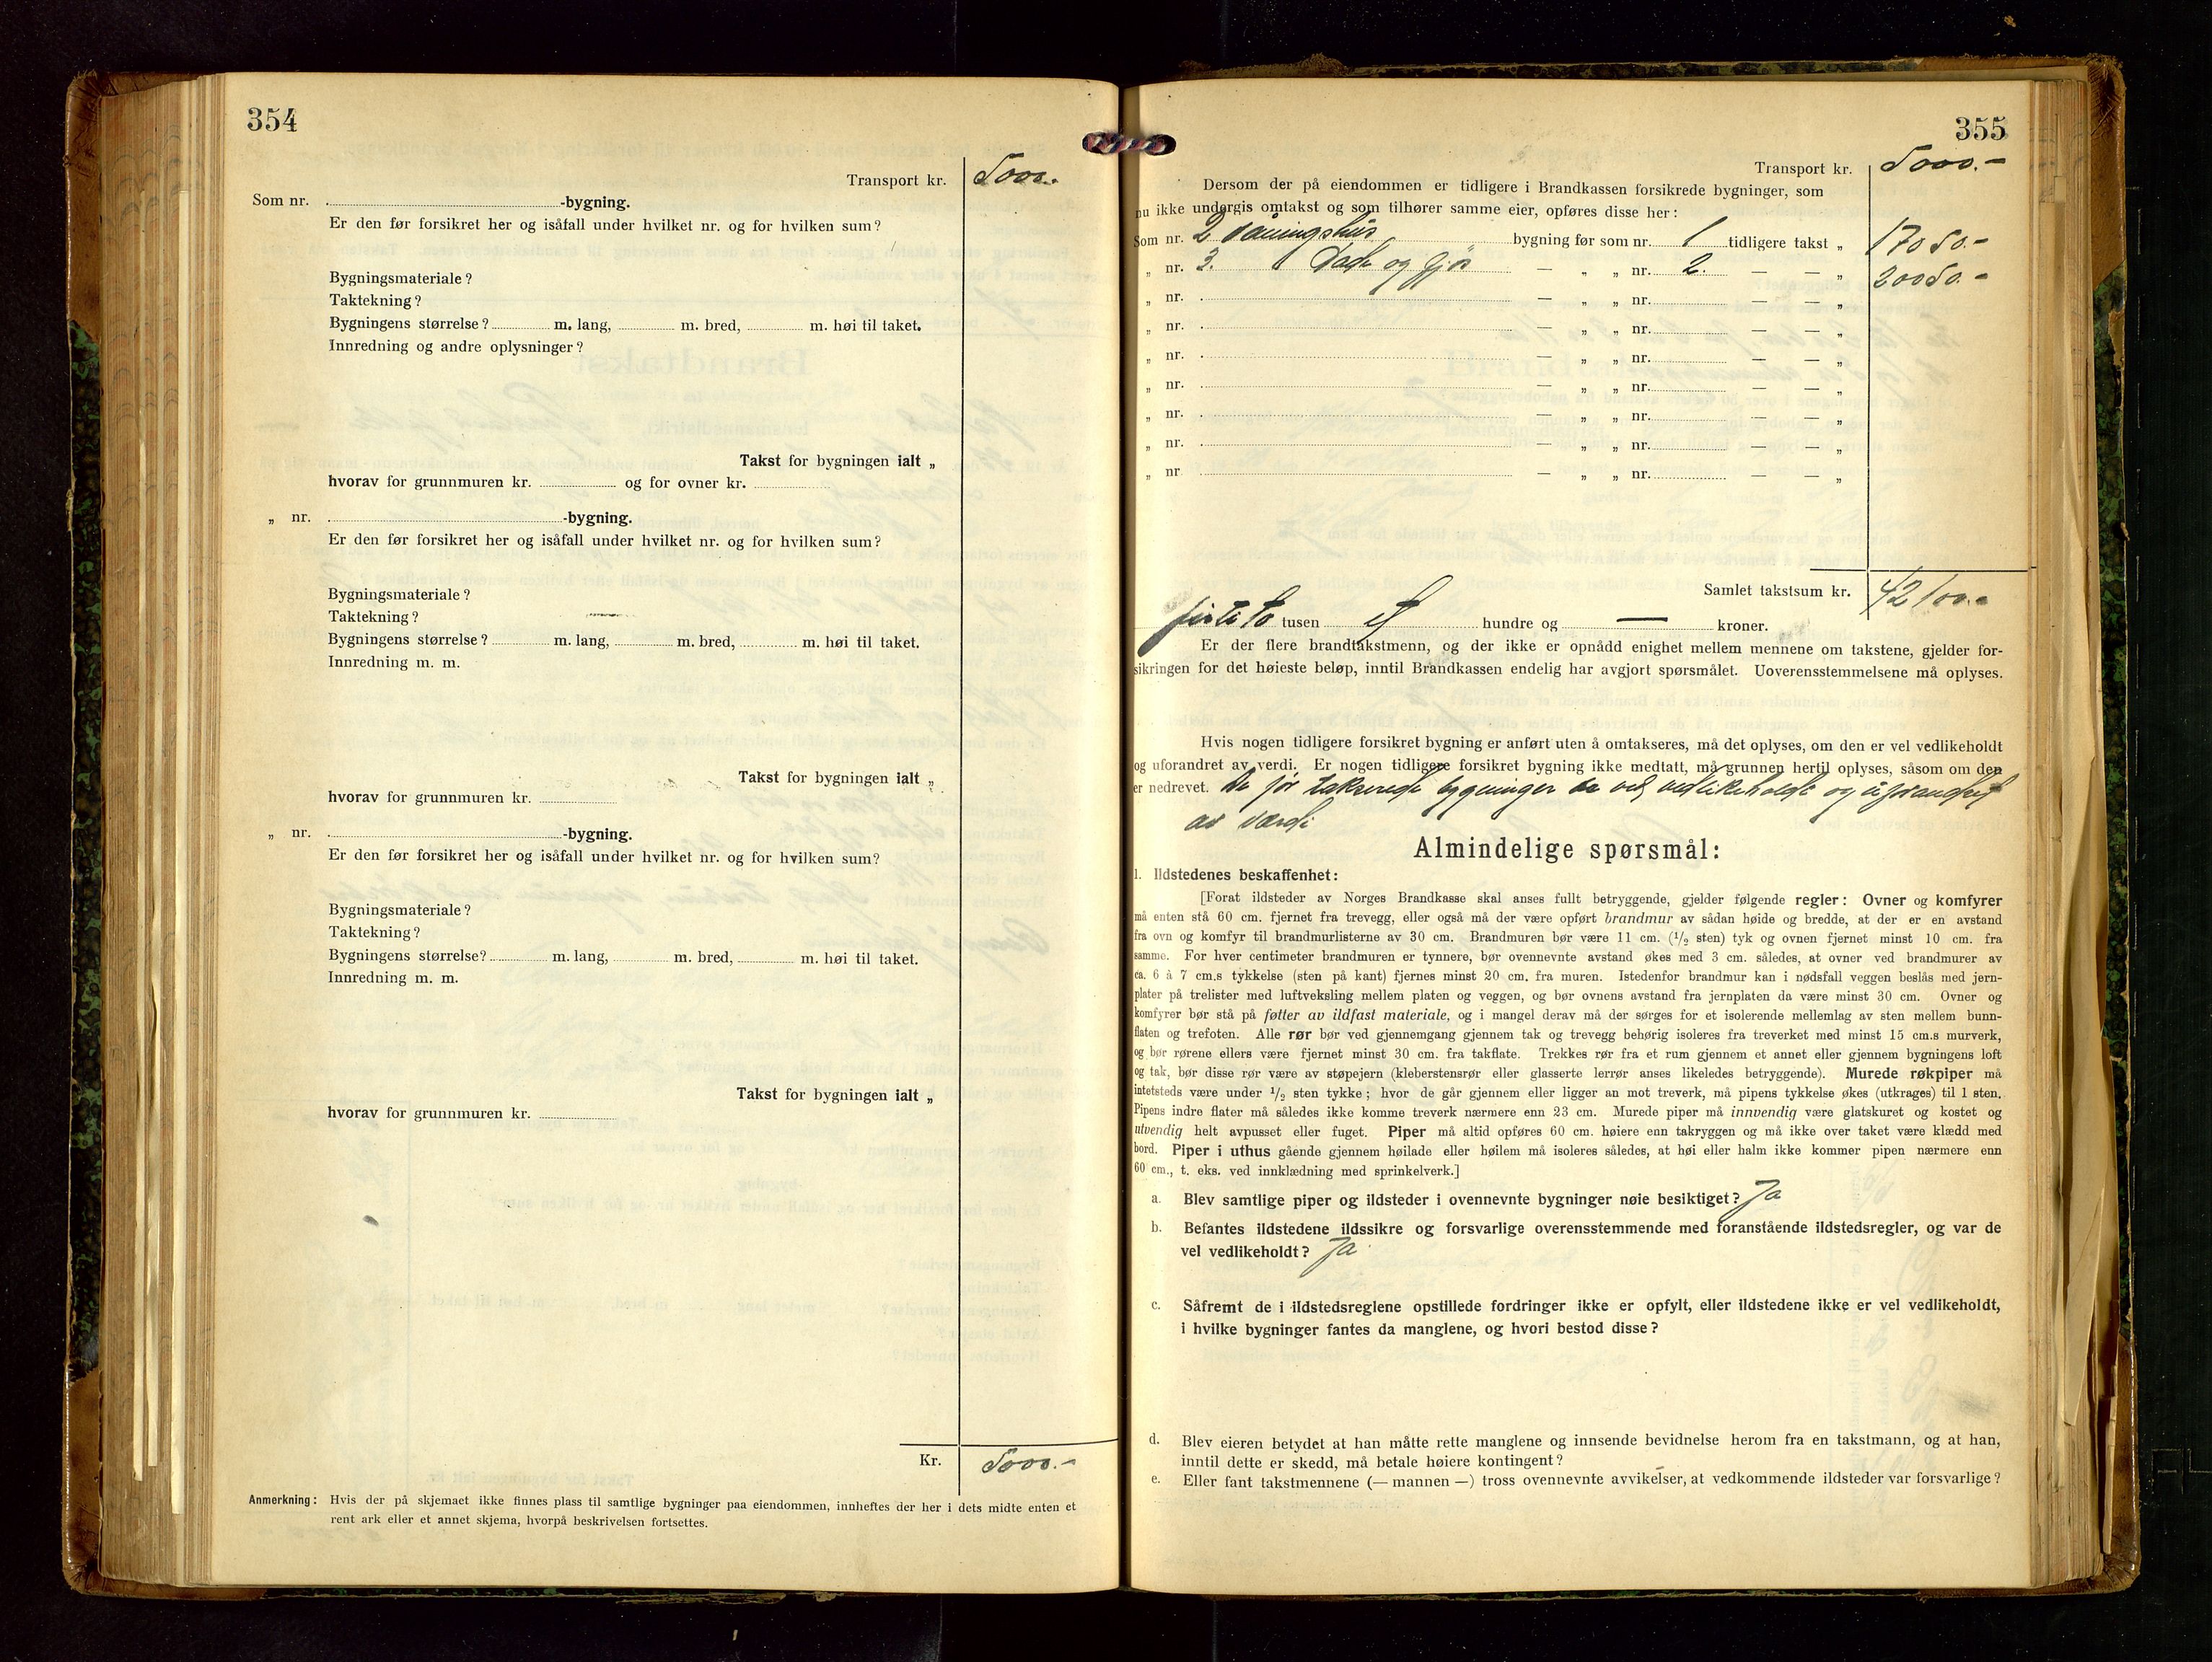 354
Transport kr. 5000.-
Som nr. -bygning.
Er den før forsikret her og isåfall under hvilket nr. og for hvilken sum?
Bygningsmateriale?
Taktekning?
Bygningens størrelse? m. lang, m. bred, m. høi til taket.
Innredning og andre oplysninger?
Takst for bygningen ialt „
hvorav for grunnmuren kr. og for ovner kr.
„ nr. -bygning.
Er den før forsikret her og isåfall under hvilket nr. og for hvilken sum?
Bygningsmateriale?
Taktekning?
Bygningens størrelse? m. lang, m. bred, m. høi til taket.
Innredning m. m.
Takst for bygningen ialt „
hvorav for grunnmuren kr.
„ nr. -bygning.
Er den før forsikret her og isåfall under hvilket nr. og for hvilken sum?
Bygningsmateriale?
Taktekning?
Bygningens størrelse? m. lang, m. bred, m. høi til taket.
Innredning m. m.
Takst for bygningen ialt „
hvorav for grunnmuren kr.
Kr. 5000.-
Anmerkning: Hvis der på skjemaet ikke finnes plass til samtlige bygninger paa eiendommen, innheftes der her i dets midte enten et
rent ark eller et annet skjema, hvorpå beskrivelsen fortsettes.
355
Transport kr. 5000.-
Dersom der på eiendommen er tidligere i Brandkassen forsikrede bygninger, som
nu ikke undergis omtakst og som tilhører samme eier, opføres disse her:
Som nr. 2 Våningshus bygning før som nr. 1 tidligere takst „ 17050.-
„ nr. 3. og — „ „ nr. 2. — — „ 20050.-
„ nr. — „ „ nr. — — „
„ nr. — „ „ nr. — — „
„ nr. — „ „ nr. — — „
„ nr. — „ „ nr. — — „
„ nr. — „ „ nr. — — „
„ nr. — „ „ nr. — — „
„ nr — „ „ nr. — — „
Samlet takstsum kr. 42100.-
firti to tusen et hundre og — kroner.
Er der flere brandtakstmenn, og der ikke er opnådd enighet mellem mennene om takstene, gjelder for-
sikringen for det høieste beløp, inntil Brandkassen endelig har avgjort spørsmålet. Uoverensstemmelsene må oplyses.
Hvis nogen tidligere forsikret bygning er anført uten å omtakseres, må det oplyses, om den er vel vedlikeholdt
og uforandret av verdi. Er nogen tidligere forsikret bygning ikke medtatt, må grunnen hertil oplyses, såsom om den
er nedrevet. De før takserede bygninger er vel vedlikeholdt og uforandret
av værdi
Almindelige spørsmål:
1. Ildstedenes beskaffenhet:
[Forat ildsteder av Norges Brandkasse skal anses fullt betryggende, gjelder følgende regler: Ovner og komfyrer
må enten stå 60 cm. fjernet fra trevegg, eller også må der være opført brandmur av sådan høide og bredde, at der er en avstand
fra ovn og komfyr til brandmurlisterne av 30 cm. Brandmuren bør være 11 cm. (1/2 sten) tyk og ovnen fjernet minst 10 cm. fra
samme. For hver centimeter brandmuren er tynnere, bør ovennevnte avstand økes med 3 cm. således, at ovner ved brandmurer av
ca. 6 à 7 cm.s tykkelse (sten på kant) fjernes minst 20 cm. fra muren. Istedenfor brandmur kan i nødsfall veggen beslås med jern-
plater på trelister med luftveksling mellem platen og veggen, og bør ovnens avstand fra jernplaten da være minst 30 cm. Ovner og
komfyrer bør stå på føtter av ildfast materiale, og i mangel derav må der sørges for et isolerende mellemlag av sten mellem bunn-
flaten og trefoten. Alle rør bør ved gjennemgang gjennem tak og trevegg behørig isoleres fra treverket med minst 15 cm.s murverk,
og bør rørene ellers være fjernet minst 30 cm. fra takflate. Trekkes rør fra et rum gjennem et annet eller gjennem bygningens loft
og tak, bør disse rør være av støpejern (kleberstensrør eller glasserte lerrør anses likeledes betryggende). Murede røkpiper må
intetsteds være under 1/2 sten tykke; hvor de går gjennem eller ligger an mot treverk, må pipens tykkelse økes (utkrages) til 1 sten.
Pipens indre flater må således ikke komme treverk nærmere enn 23 cm. Murede piper må innvendig være glatskuret og kostet og
utvendig helt avpusset eller fuget. Piper må altid opføres 60 cm. høiere enn takryggen og må ikke over taket være klædd med
bord. Piper i uthus gående gjennem høilade eller høilem må isoleres således, at høi eller halm ikke kommer pipen nærmere enn
60 cm., t. eks. ved innklædning med sprinkelverk.]
a. Blev samtlige piper og ildsteder i ovennevnte bygninger nøie besiktiget? Ja
b. Befantes ildstedene ildssikre og forsvarlige overensstemmende med foranstående ildstedsregler, og var de
vel vedlikeholdt? Ja
c. Såfremt de i ildstedsreglene opstillede fordringer ikke er opfylt, eller ildstedene ikke er vel vedlikeholdt,
i hvilke bygninger fantes da manglene, og hvori bestod disse?
d. Blev eieren betydet at han måtte rette manglene og innsende bevidnelse herom fra en takstmann, og at han,
inntil dette er skedd, må betale høiere kontingent?
e. Eller fant takstmennene (— mannen —) tross ovennevnte avvikelser, at vedkommende ildsteder var forsvarlige?